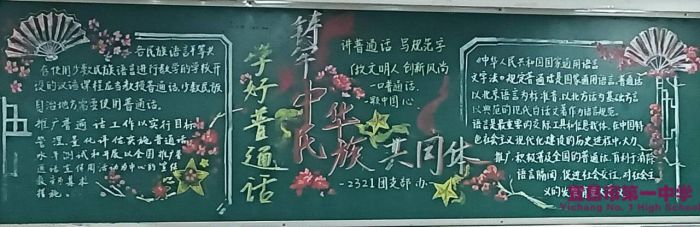 各民族语言平等共
在使用少数民族语言进行教学的学校开
设的汉语课程应当教授普通话,少数民族
自治地方需要使用普通话。
推广普通话工作以实行目标
管理,量化评估实施普通话
水平测试和开展以全国推广普
通话宣传周活动为中心的宣传
教育为基本
措施。
学好普通话
铸牢中华民族共同体
讲普通话 写规范字
做文明人 创新风尚
一口普通话,
一颗中国心
-2321团支部 办-
《中华人民共和国国家通用语言
文字法》规定普通话是国家通用语言,普通话
以北京语音为标准音,以北方话为基础方言
以典范的现代白话文著作为语法规范。
语言是最重要的交际工具和信息载体,在中国特
色社会主义现代化建设的历史进程中,大力
推广、积极普及全国的普通话,有利于消除
语言隔阂,促进社会交往,对社会主
义的发
宜昌市第一中学
Yichang No. 1 High School